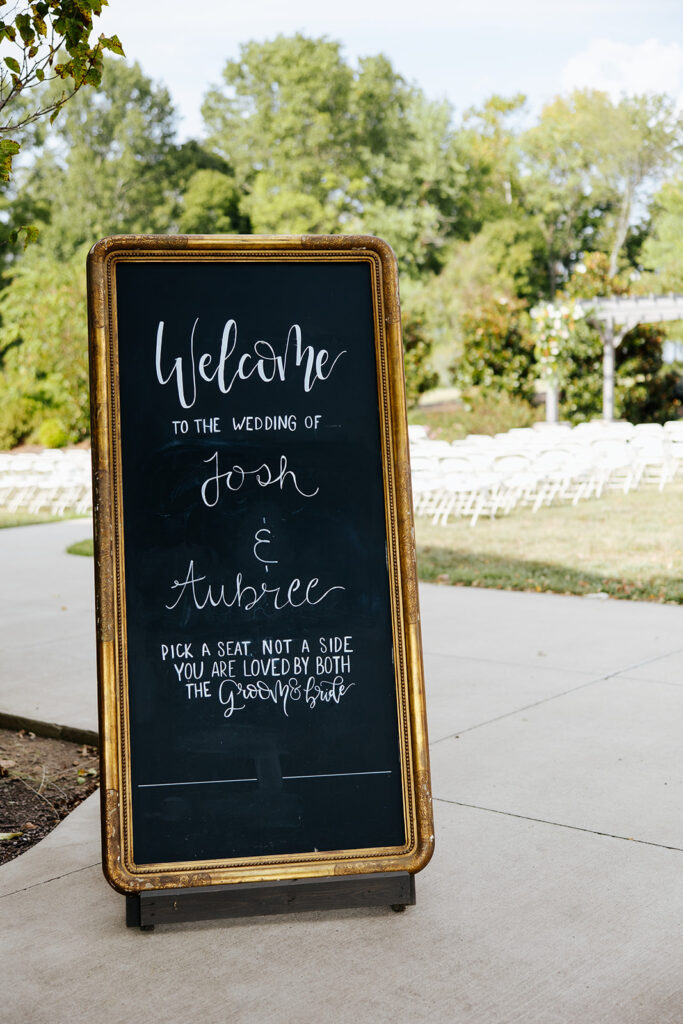 Welcome
TO THE WEDDING OF
Josh
&
Aubree
PICK A SEAT NOT A SIDE
YOU ARE LOVED BY BOTH
THE Groom & bride